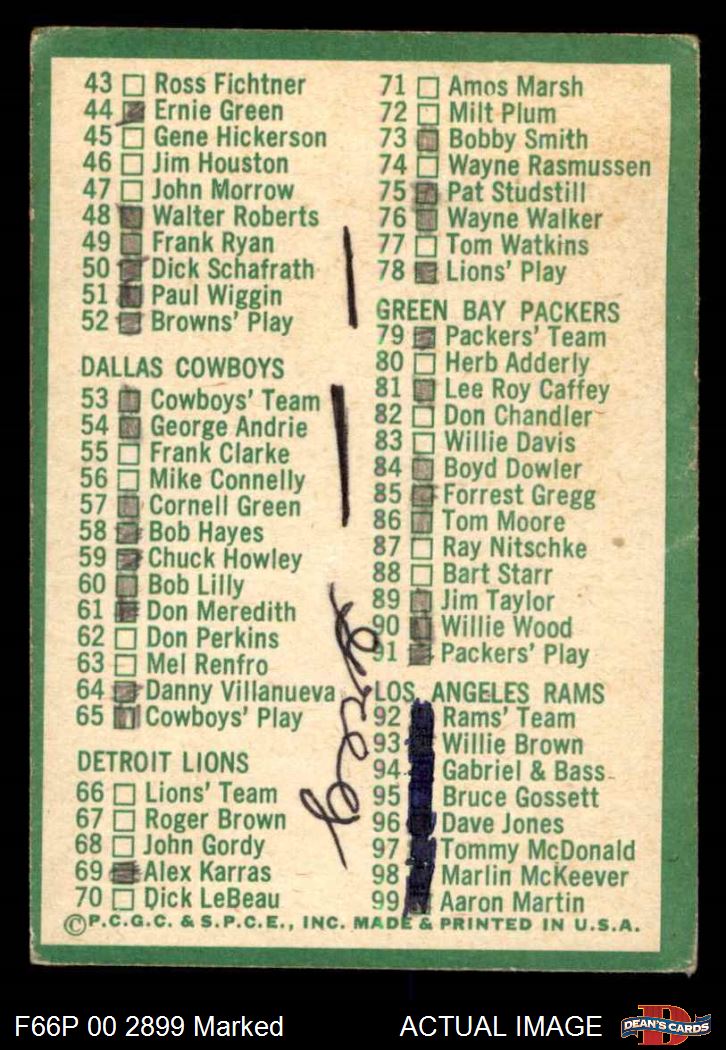 43 Ross Fichtner
44 Ernie Green
45 Gene Hickerson
46 Jim Houston
47 John Morrow
48 Walter Roberts
49 Frank Ryan
50 Dick Schafrath
51 Paul Wiggin
52 Browns' Play
DALLAS COWBOYS
53 Cowboys' Team
54 George Andrie
55 Frank Clarke
56 Mike Connelly
57 Cornell Green
58 Bob Hayes
59 Chuck Howley
60 Bob Lilly
61 Don Meredith
62 Don Perkins
63 Mel Renfro
64 Danny Villanueva
65 Cowboys' Play
DETROIT LIONS
66 Lions' Team
67 Roger Brown
68 John Gordy
69 Alex Karras
70 Dick LeBeau
71 Amos Marsh
72 Milt Plum
73 Bobby Smith
74 Wayne Rasmussen
75 Pat Studstill
76 Wayne Walker
77 Tom Watkins
78 Lions' Play
GREEN BAY PACKERS
79 Packers' Team
80 Herb Adderly
81 Lee Roy Caffey
82 Don Chandler
83 Willie Davis
84 Boyd Dowler
85 Forrest Gregg
86 Tom Moore
87 Ray Nitschke
88 Bart Starr
89 Jim Taylor
90 Willie Wood
91 Packers' Play
LOS ANGELES RAMS
92 Rams' Team
93 Willie Brown
94 Gabriel & Bass
95 Bruce Gossett
96 Dave Jones
97 Tommy McDonald
98 Marlin McKeever
99 Aaron Martin
©P.C.G.C. & S.P.C.E., INC. MADE & PRINTED IN U.S.A.
F66P 00 2899 Marked
ACTUAL IMAGE
DEAN'S CARDS